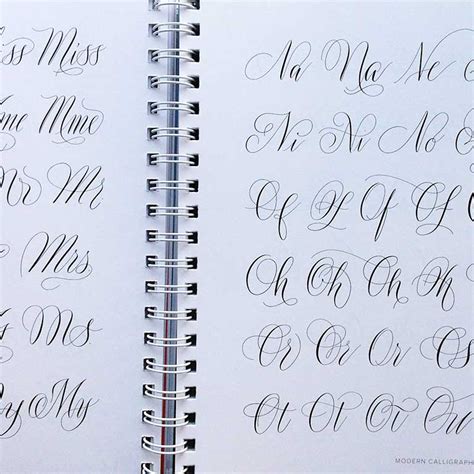 iss Miss
me Mme
Mr Mr
Mrs
s Ms
y My
Na Na Ne
Ni Ni No
Of Of Of
Oh Oh Oh Oh
Or Or Or Os
Ot Ot Ot Ou
MODERN CALLIGRAPH